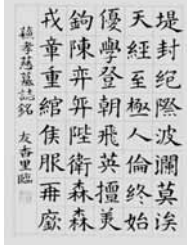 堤封紀際波瀾莫涘
天經至極人倫終始
優學登朝飛英擅美
鉤陳弈弈陛衛森森
戎章重綰侯服再廞
蘓孝慈墓誌銘 友香里臨